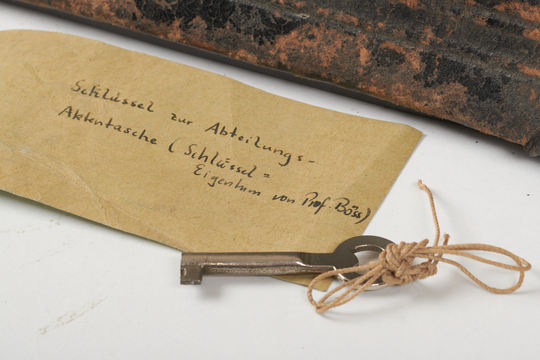 Schlüssel zur Abteilungs-
Aktentasche (Schlüssel =
Eigentum von Prof. Böss)